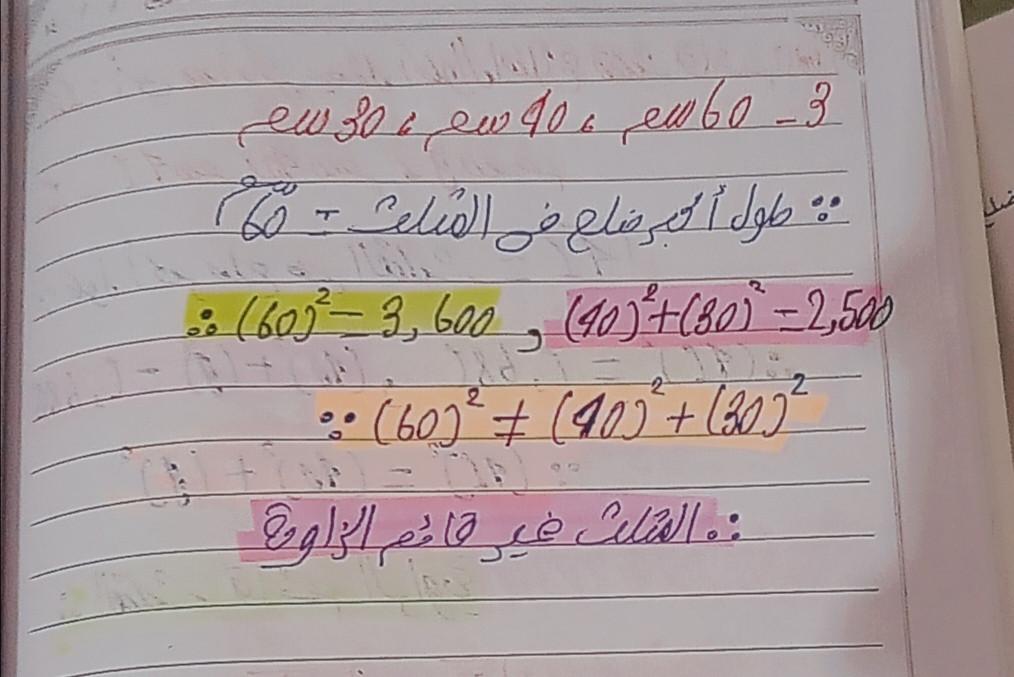 3 - 60 سم ، 40 سم ، 30 سم
∵ طول أكبر ضلع فى المثلث = 60 سم
∴ (60)² = 3,600 , (40)² + (30)² = 2,500
∵ (60)² ≠ (40)² + (30)²
∴ المثلث غير قائم الزاوية